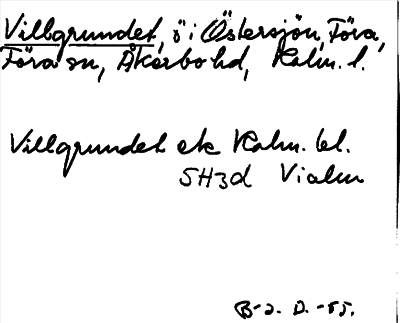 Villgrundet, ö i Östersjön, Föra,
Föra sn, Åkerbo hd, Kalm. l.
Villgrundet ek Kalm. bl.
SH3d
B-2. D. -55.